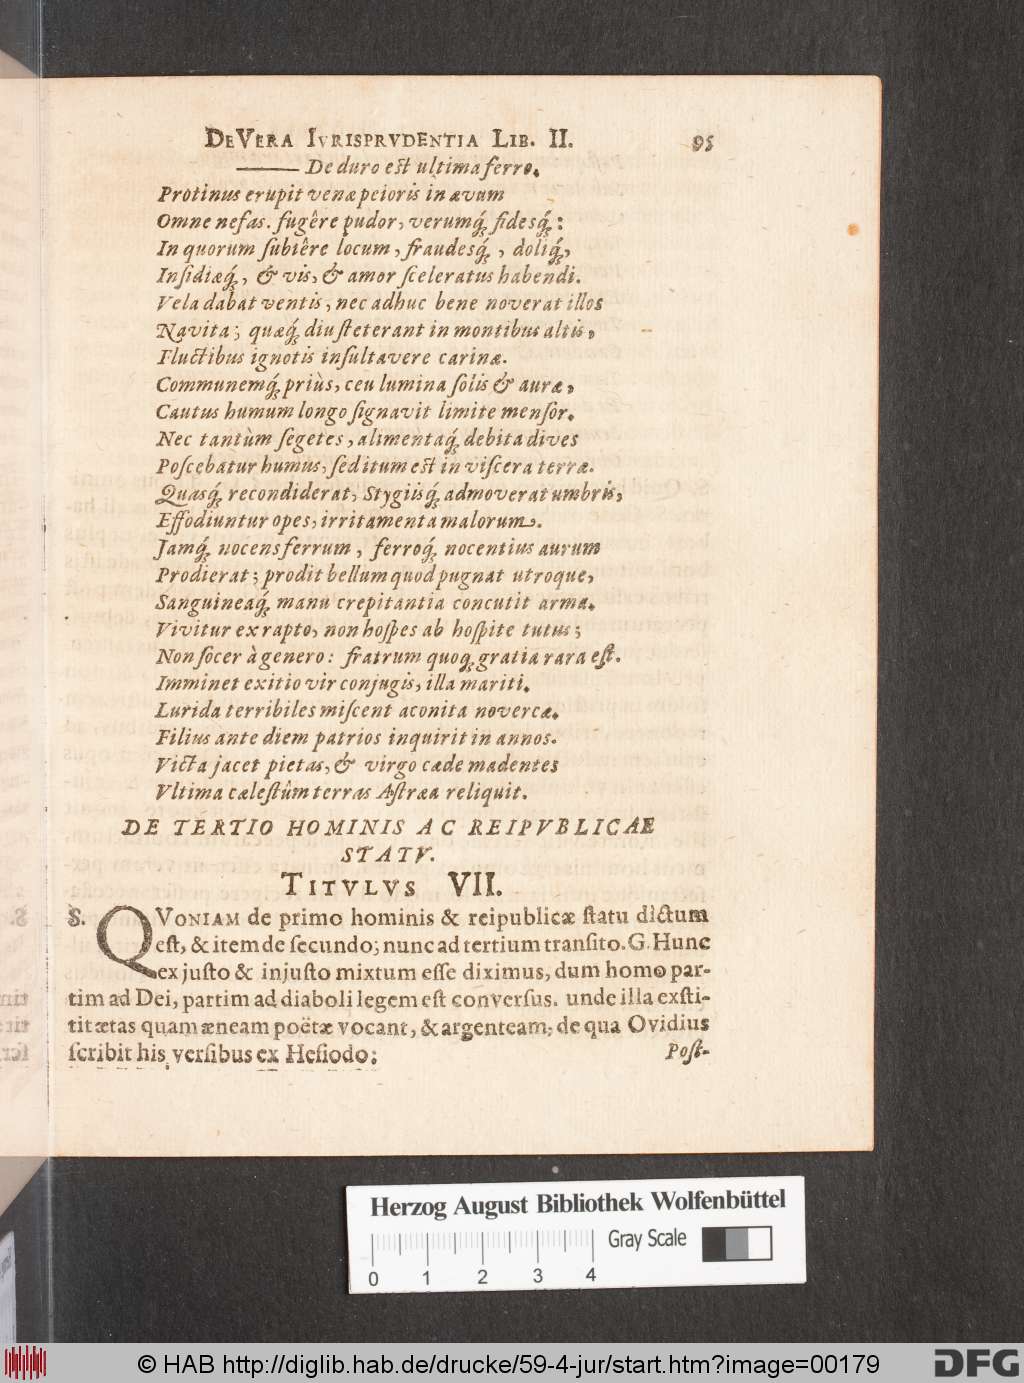 DE VERA IVRISPRVDENTIA LIB. II. 95
——— De duro est ultima ferro.
Protinus erupit venæ peioris in ævum
Omne nefas. fugêre pudor, verumq́; fidesq́;:
In quorum subiêre locum, fraudesq́;, doliq́;,
Insidiæq́;, & vis, & amor sceleratus habendi.
Vela dabat ventis, nec adhuc bene noverat illos
Navita; quæq́; diu steterant in montibus altis,
Fluctibus ignotis insultavere carinæ.
Communemq́; priùs, ceu lumina solis & auræ,
Cautus humum longo signavit limite mensor.
Nec tantùm segetes, alimentaq́; debita dives
Poscebatur humus, sed itum est in viscera terræ.
Quasq́; recondiderat, Stygiisq́; admoverat umbris,
Effodiuntur opes, irritamenta malorum.
Jamq́; nocens ferrum, ferroq́; nocentius aurum
Prodierat; prodit bellum quod pugnat utroque,
Sanguineaq́; manu crepitantia concutit arma.
Vivitur ex rapto, non hospes ab hospite tutus;
Non socer à genero: fratrum quoq; gratia rara est.
Imminet exitio vir conjugis, illa mariti.
Lurida terribiles miscent aconita novercæ.
Filius ante diem patrios inquirit in annos.
Victa jacet pietas, & virgo cæde madentes
Vltima cælestûm terras Astræa reliquit.
DE TERTIO HOMINIS AC REIPVBLICAE
STATV.
TITVLVS VII.
S. QVONIAM de primo hominis & reipublicæ statu dictum
est, & item de secundo; nunc ad tertium transito. G. Hunc
ex justo & injusto mixtum esse diximus, dum homo par-
tim ad Dei, partim ad diaboli legem est conversus. unde illa exsti-
tit ætas quam æneam poëtæ vocant, & argenteam; de qua Ovidius
scribit his versibus ex Hesiodo:
Post-
Herzog August Bibliothek Wolfenbüttel
Gray Scale
0 1 2 3 4
© HAB http://diglib.hab.de/drucke/59-4-jur/start.htm?image=00179
DFG